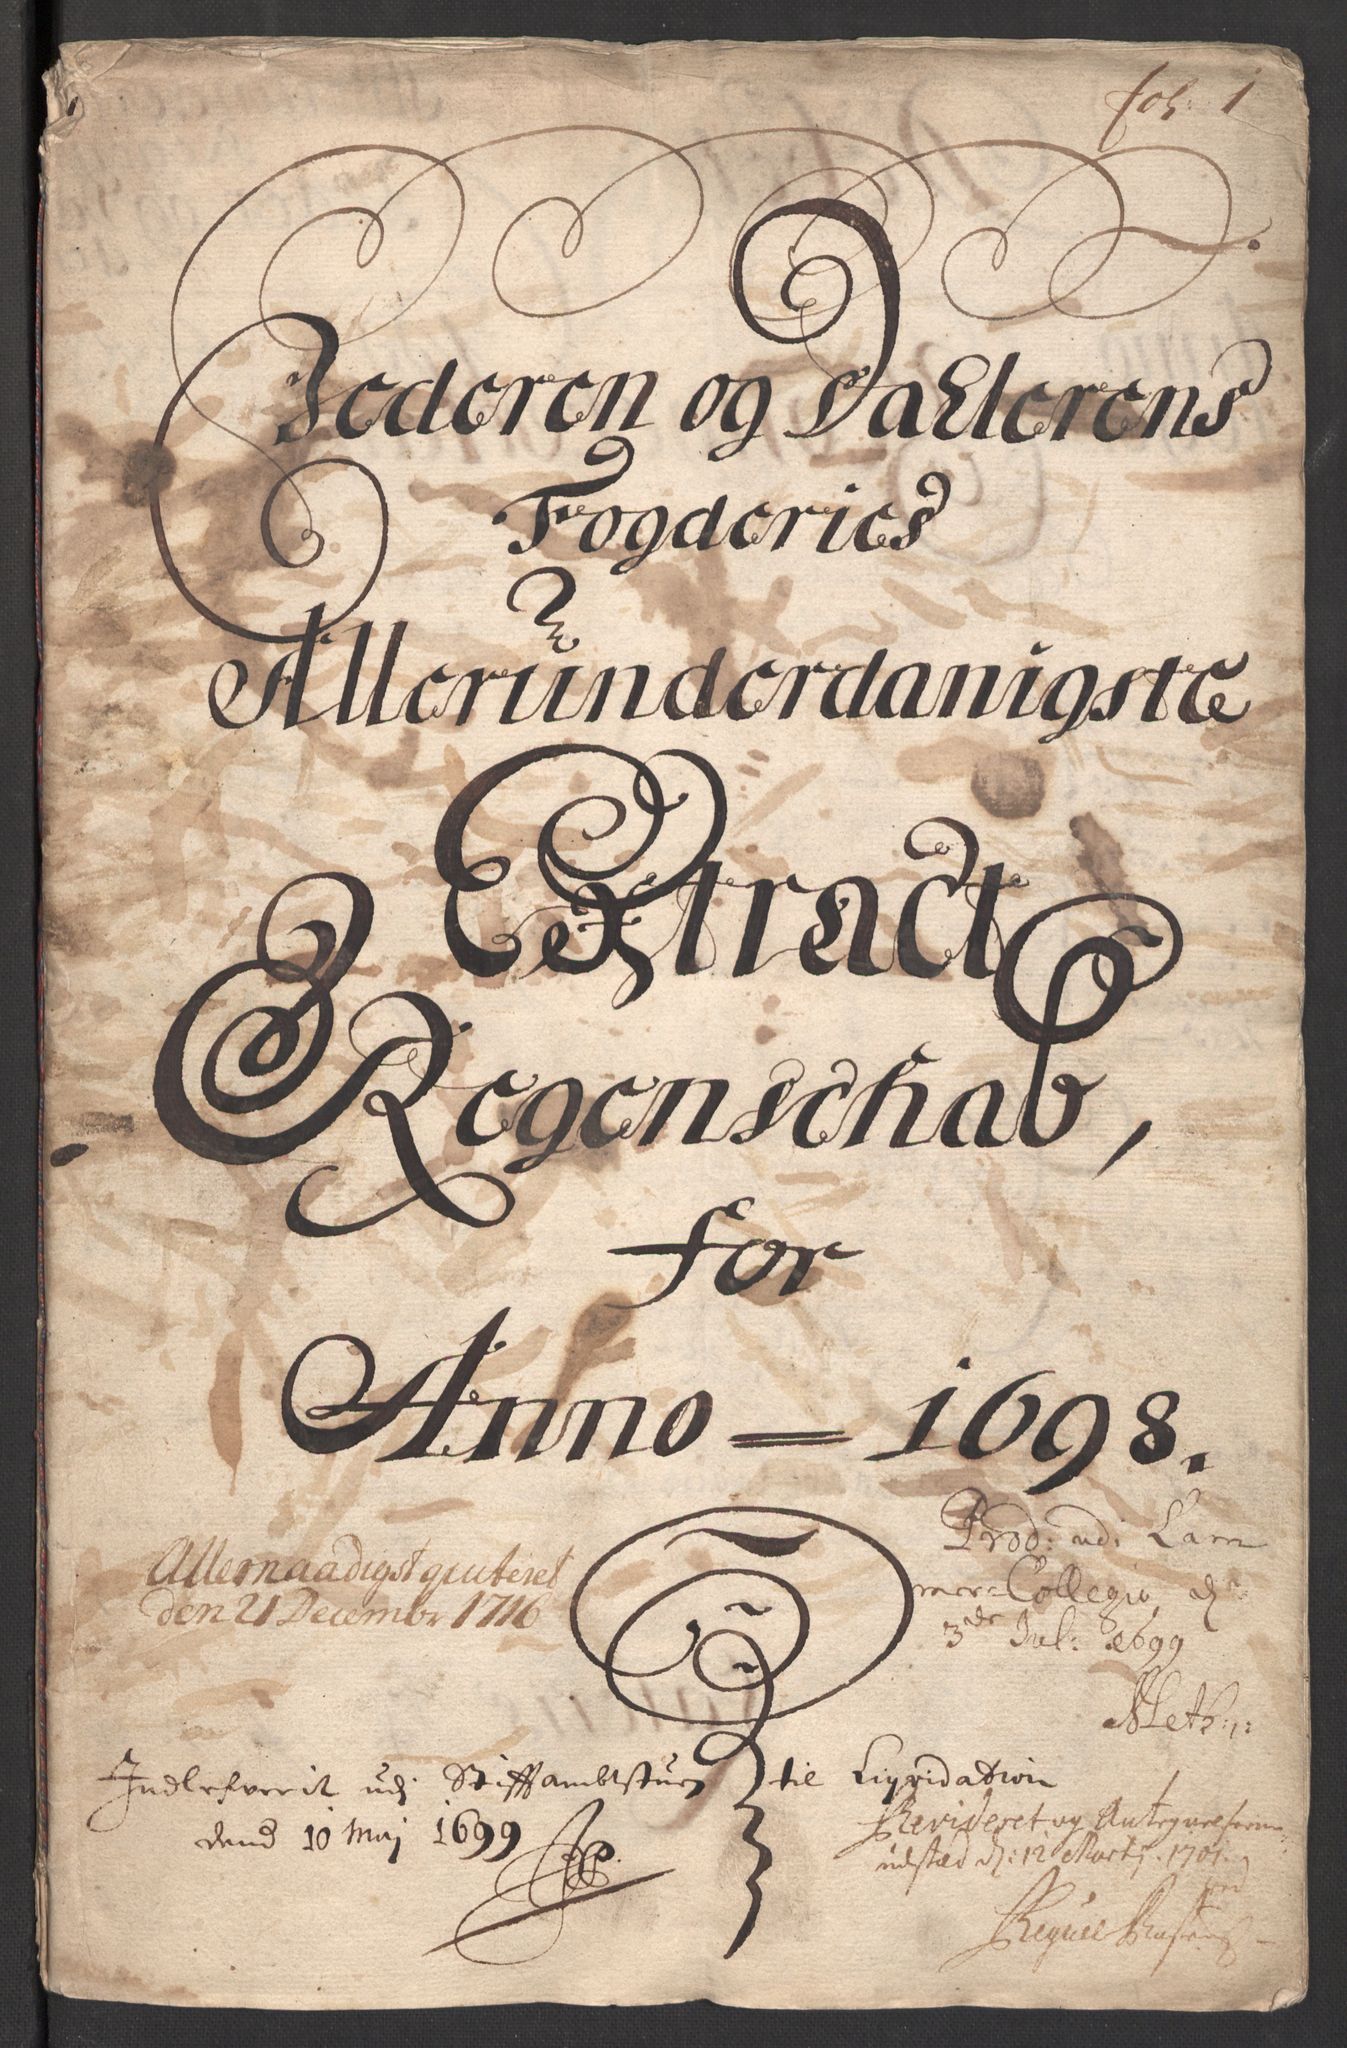 fol: 1
Jederen og Dahlerens
Fogderies
Alleründerdanigste
Extract
Regenschab,
for
Anno - 1698.
Allernaadigst qviteret
den 21 Decembr 1716
Prod: udi Cam
mer Collegio d
3de Jul: 1699
Indlefverit udj Stifftambtstuen til Liqvidation
dend 10 Maj 1699
Revideret og Anteqvelserne
udstæd d: 12 Martj. 1701.